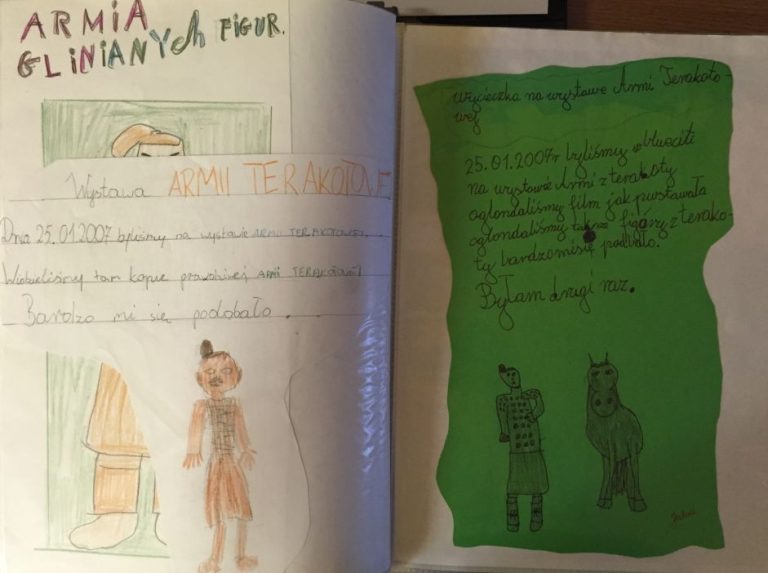 ARMIA
GLINIANYCh FIGUR.
Wystawa ARMII TERAKOTOWEJ
Dnia 25.01.2007 byliśmy na wystawie ARMII TERAKOTOWEJ.
Widzieliśmy tam kopie prawdziwej ARMI TERAKOTOWEJ
Bardzo mi się podobało.
Wycieczka na wystawe Armi Terakoto-
wej
25.01.2007r byliśmy
na wystawe Armi z terakoty
oglondaliśmy film jak powstawała
oglondaliśmy także figury z terako-
ty bardzomisię podobało.
Byłam drugi raz.